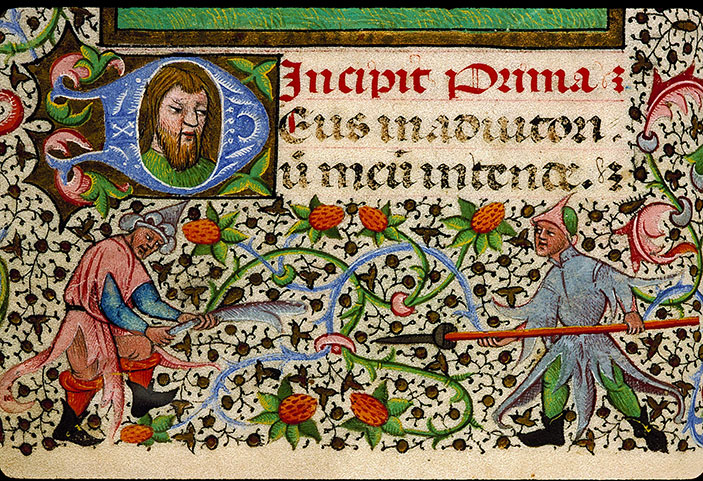 Incipit Prima &
DEus in adiutori
ū meū intende. &